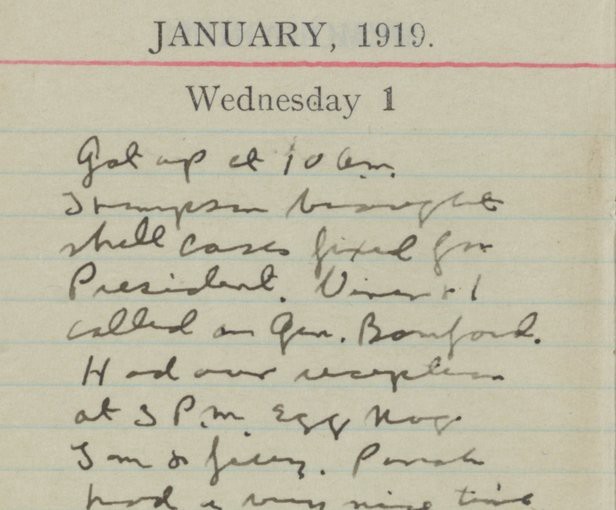 JANUARY, 1919.
Wednesday 1
Got up at 10 a.m.
brought
shell cases fixed for
President. Viner & I
called on Gen. Bomford.
Had our reception
at 5 P.M. Egg Nog
&
had a very nice time